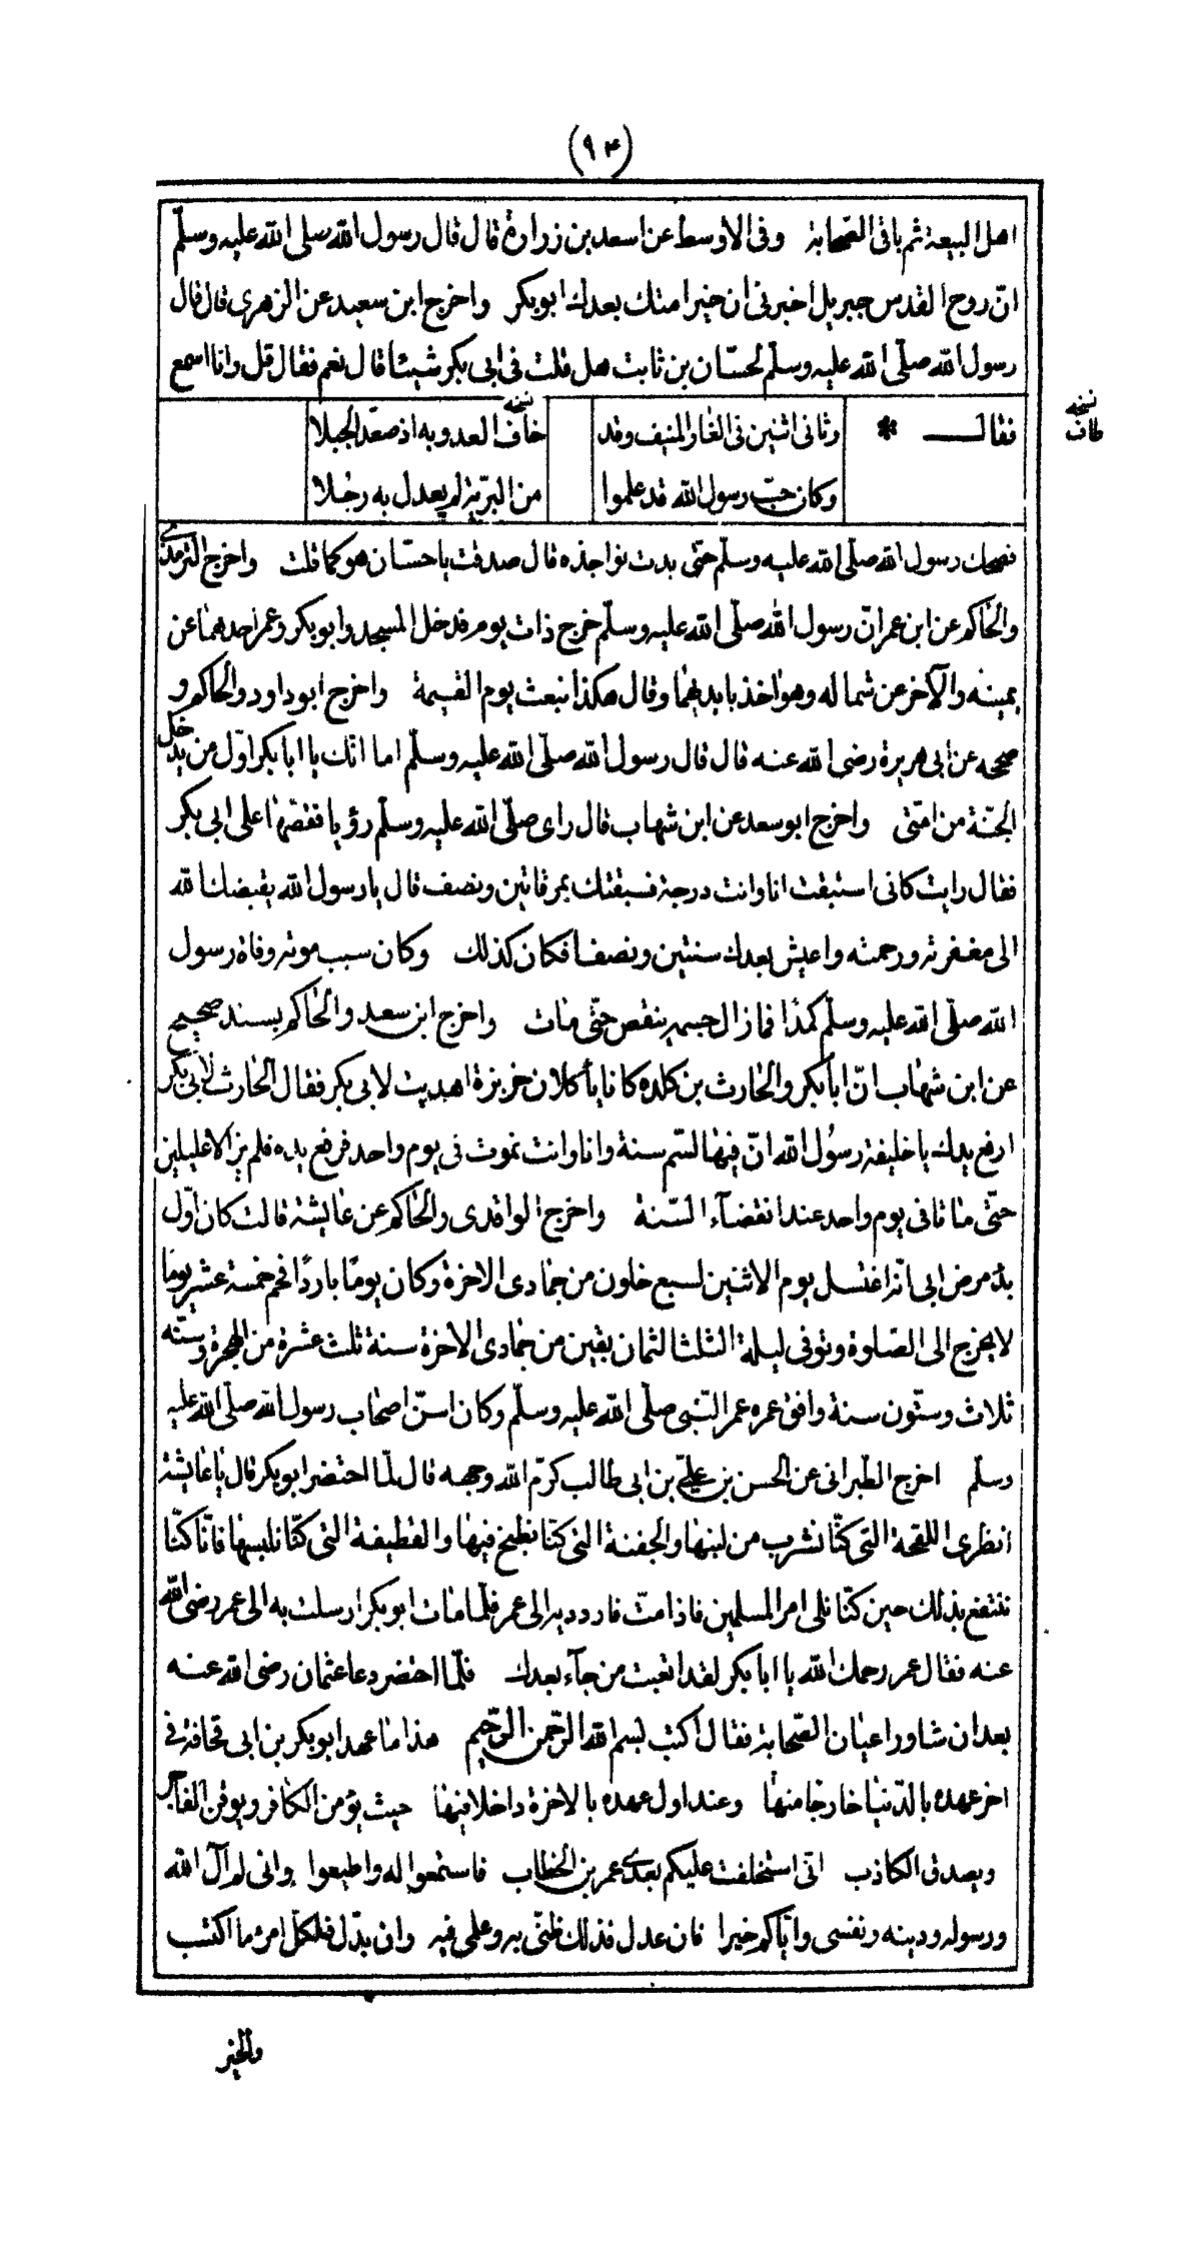 (٩٤)
اهل البيعة ثم باقى الصحابة وفى الاوسط عن اسعد بن زرارة قال قال رسول الله صلى الله عليه وسلّم
انّ روح القدس جبريل اخبرنى ان خير امتك بعدك ابو بكر واخرج ابن سعيد عن الزهرى قال قال
رسول الله صلّى الله عليه وسلّم لحسّان بن ثابت هل قلت فى ابى بكر شيئا قال نعم فقال قل وانا اسمع
فقال * وثانى اثنين فى الغار المنيف وقد خاف العدو به اذ صعّد الجبلا
نسخه
نسخه طاف
وكان حبّ رسول الله قد علموا من البريّة لم يعدل به رجلا
فضحك رسول الله صلّى الله عليه وسلّم حتّى بدت نواجذه قال صدقت يا حسّان هو كما قلت واخرج الترمذى
والحاكم عن ابن عمر انّ رسول الله صلّى الله عليه وسلّم خرج ذات يوم فدخل المسجد وابو بكر وعمر احدهما عن
يمينه والآخر عن شماله وهو اخذ بايديهما وقال هكذا نبعث يوم القيمة واخرج ابو داود والحاكم و
صححه عن ابى هريرة رضى الله عنه قال قال رسول الله صلّى الله عليه وسلّم اما انّك يا ابا بكر اوّل من يدخل
الجنّة من امّتى واخرج ابو سعد عن ابن شهاب قال راى صلّى الله عليه وسلّم رؤيا فقصّها على ابى بكر
فقال رايت كانى استبقت انا وانت درجة فسبقتك بمرقاتين ونصف قال يا رسول الله يقبضك الله
الى مغفرته ورحمته واعيش بعدك سنتين ونصفا فكان كذلك وكان سبب موته وفاة رسول
الله صلّى الله عليه وسلّم كمدًا فما زال جسمه ينقص حتّى مات واخرج ابن سعد والحاكم بسند صحيح
عن ابن شهاب انّ ابا بكر والحارث بن كلده كانا يأكلان خزيزة اهديت لابى بكر فقال الحارث لابى بكر
ارفع يدك يا خليفة رسول الله انّ فيها لسّم سنة وانا وانت نموت فى يوم واحد فرفع يده فلم يزالا عليلين
حتّى ماتا فى يوم واحد عند انقضآء السّنة واخرج الواقدى والحاكم عن عايشة قالت كان اوّل
بدء مرض ابى انّه اغتسل يوم الاثنين لسبع خلون من جمادى الاخرة وكان يومًا باردًا فحم خمسة عشر يومًا
لا يخرج الى الصّلوة وتوفى ليلة الثلثا لثمان بقين من جمادى الاخرة سنة ثلث عشرة من الهجرة وسنّه
ثلاث وستّون سنة وافق عمره عمر النّبى صلّى الله عليه وسلّم وكان اسنّ اصحاب رسول الله صلّى الله عليه
وسلّم اخرج الطبرانى عن الحسن بن علىّ بن ابى طالب كرّم الله وجهه قال لمّا احتضر ابو بكر قال يا عايشة
انظرى اللقحة التى كنّا نشرب من لبنها والجفنة التى كنّا نطبخ فيها والقطيفة التى كنّا نلبسها فانّا كنّا
ننتفع بذلك حين كنّا نلى امر المسلمين فاذا متّ فاردديه الى عمر فلمّا مات ابو بكر ارسلت به الى عمر رضى الله
عنه فقال عمر رحمك الله يا ابا بكر لقد اتعبت من جآء بعدك فلمّا احتضر دعا عثمان رضى الله عنه
بعد ان شاور اعيان الصّحابة فقال اكتب بسم الله الرّحمن الرّحيم هذا ما عهد ابو بكر بن ابى قحافة فى
اخر عهده بالدّنيا خارجا منها وعند اول عهده بالاخرة داخلا فيها حيث يؤمن الكافر ويوقن الفاجر
ويصدق الكاذب انّى استخلفت عليكم بعدى عمر بن الخطاب فاستمعوا له واطيعوا وانى لم آل الله
ورسوله ودينه ونفسى وايّاكم خيرا فان عدل فذلك ظنّى به وعلمى فيه وان بدّل فلكلّ امرء ما اكتسب
والخير